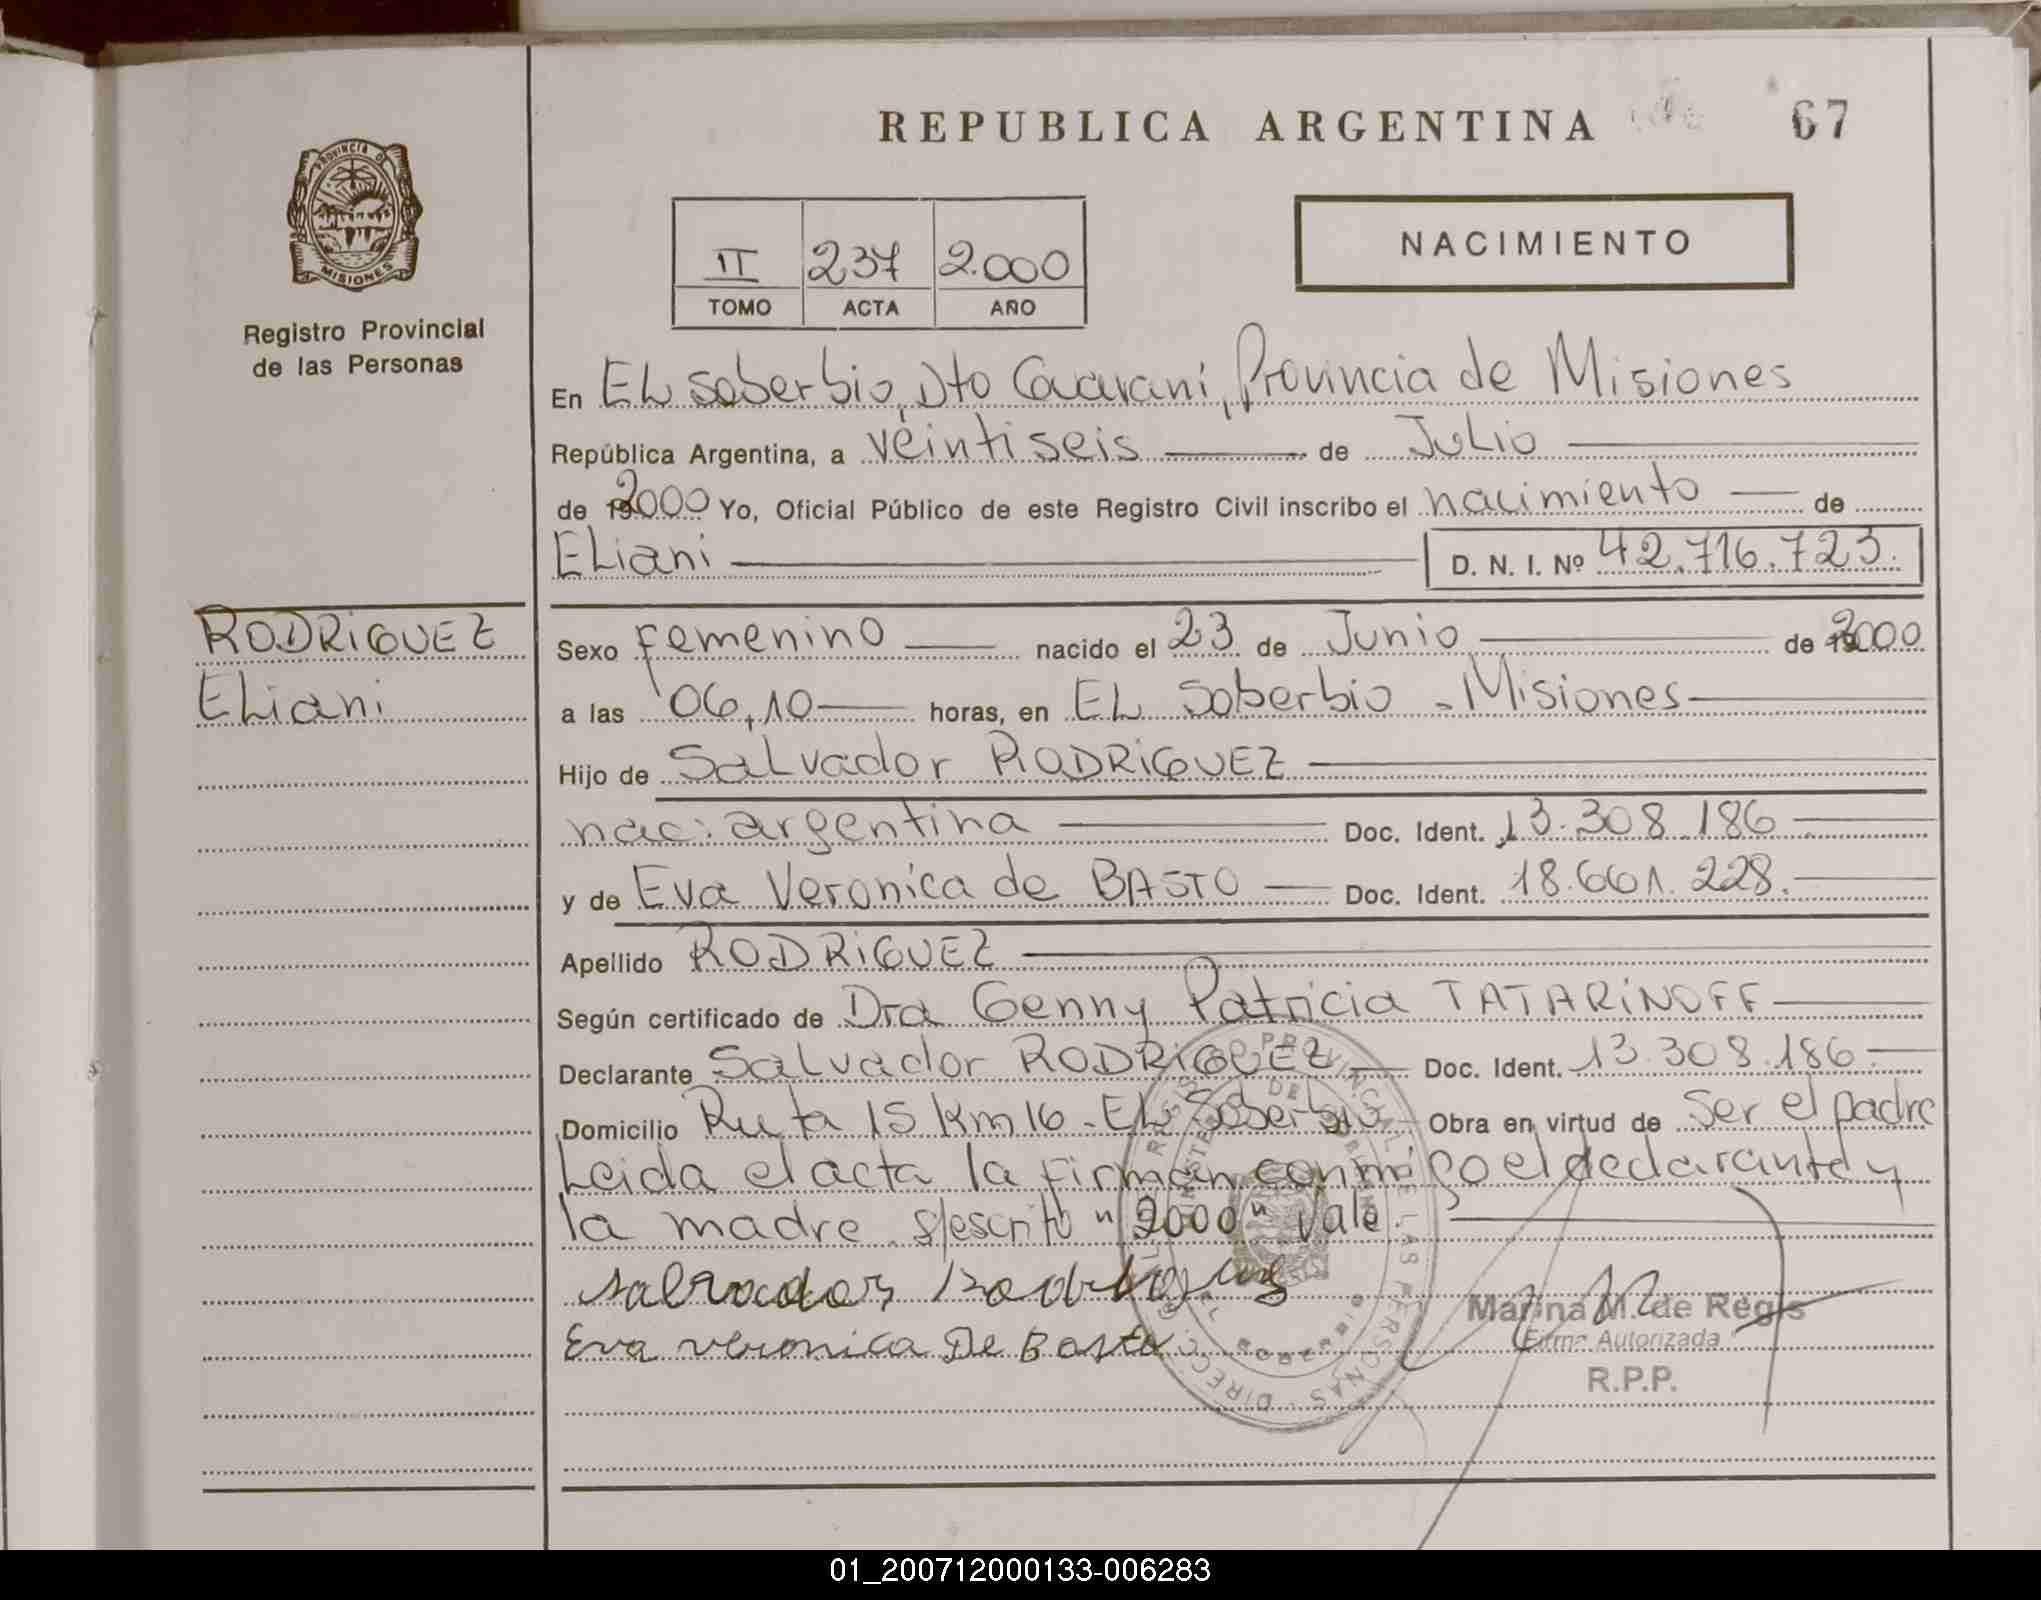 REPUBLICA ARGENTINA
67
PROVINCIA DE
MISIONES
Registro Provincial
de las Personas
II 237 2.000
TOMO ACTA AÑO
NACIMIENTO
En EL Soberbio, Dto Guarani, Provincia de Misiones
República Argentina, a veintiseis de Julio
de 2000 Yo, Oficial Público de este Registro Civil inscribo el nacimiento de
ELiani D. N. I. Nº 42.716.723.
RODRIGUEZ
ELiani
Sexo femenino nacido el 23 de Junio de 2000
a las 06,10 horas, en EL Soberbio - Misiones
Hijo de Salvador RODRIGUEZ
nac: argentina Doc. Ident. 13.308.186
y de Eva Veronica de BASTO Doc. Ident. 18.661.228.
Apellido RODRIGUEZ
Según certificado de Dra Genny Patricia TATARINOFF
Declarante Salvador RODRIGUEZ Doc. Ident. 13.308.186
Domicilio Ruta 15 Km 16 - EL Soberbio Obra en virtud de Ser el padre
Leida el acta la firman conmigo el declarante y
la madre s/escrito "2000" Vale.
Salvador Rodriguez
Eva veronica De Basto
Marina M. de Regis
Firma Autorizada
R.P.P.
01_200712000133-006283